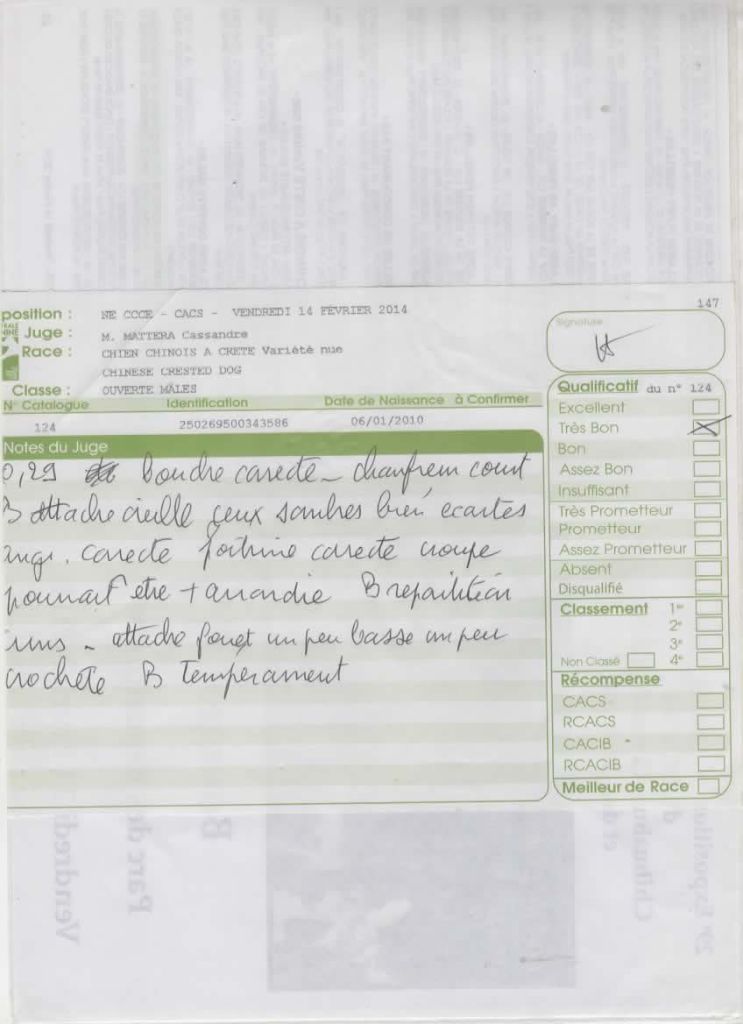 147
position : NE CCCE - CACS - VENDREDI 14 FÉVRIER 2014
Juge : M. MATTERA Cassandre
Race : CHIEN CHINOIS A CRETE Variété nue
CHINESE CRESTED DOG
Classe : OUVERTE MÂLES
N° Catalogue Identification Date de Naissance à Confirmer
124 250269500343586 06/01/2010
Notes du Juge
0,29 Boudre carecte - chanfrein court
B attache oreille yeux sombres bien ecartés
angu. carecte poitrine carecte croupe
pourrait etre + arrondie B repartition
crins - attache fouet un peu basse un peu
crochete B temperament
Signature
Qualificatif du n° 124
Excellent
Très Bon
Bon
Assez Bon
Insuffisant
Très Prometteur
Prometteur
Assez Prometteur
Absent
Disqualifié
Classement 1er
2e
3e
Non Classé 4e
Récompense
CACS
RCACS
CACIB
RCACIB
Meilleur de Race